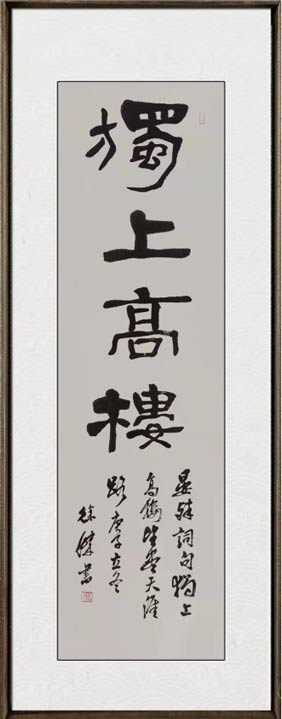 獨上高樓
晏殊詞句獨上
高樓望盡天涯
路庚子立冬
徐傑書